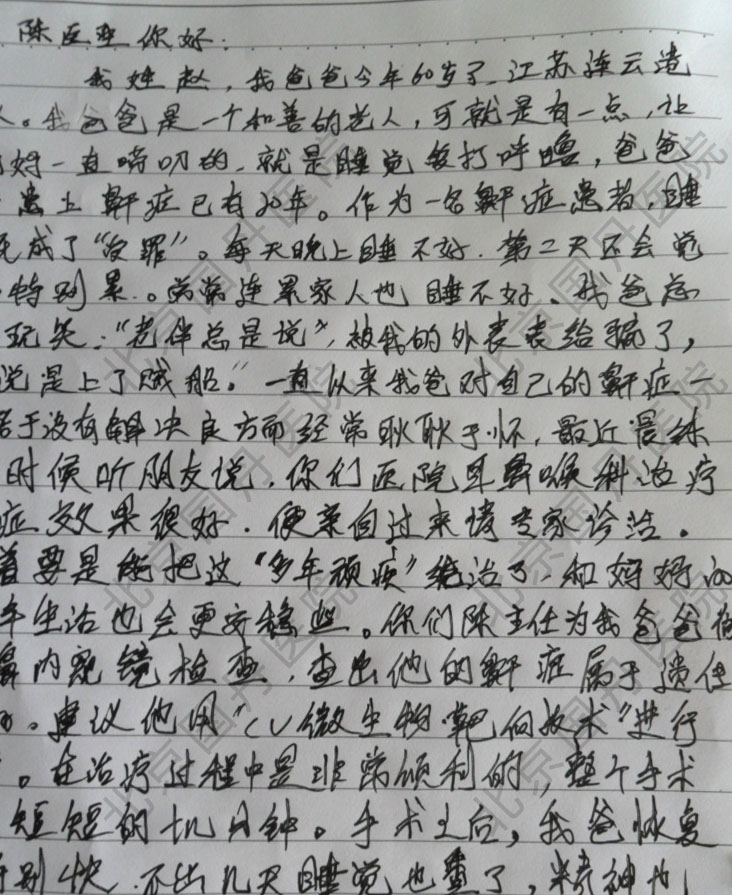 陈医生你好:
我姓赵,我爸爸今年60岁了,江苏连云港
人。我爸爸是一个和善的老人,可就是有一点,让
妈一直唠叨的,就是睡觉爱打呼噜,爸爸
患上鼾症已有20年。作为一名鼾症患者,睡
成了“受罪”。每天晚上睡不好,第二天还会觉
特别累。常常连累家人也睡不好。我爸总
玩笑:“老伴总是说”,被我的外表表给骗了,
说是上了贼船。”一直以来我爸对自己的鼾症一
于没有解决良方而经常耿耿于怀,最近晨练
时候听朋友说,你们医院耳鼻喉科治疗
症效果很好,便亲自过来请专家诊治。
要是能把这“多年顽疾”绝治了,和妈妈的
年生活也会更安稳些。你们陈主任为我爸爸做
鼻内窥镜检查,查出他的鼾症属于遗传
。建议他用“CV微生物靶向技术”进行
。在治疗过程中是非常顺利的,整个手术
短短的十几分钟。手术之后,我爸恢复
特别快,不出几天睡觉也香了,精神也
北京国丹医院
北京国丹医院
北京国丹医院
北京国丹医院
北京国丹医院
北京国丹医院